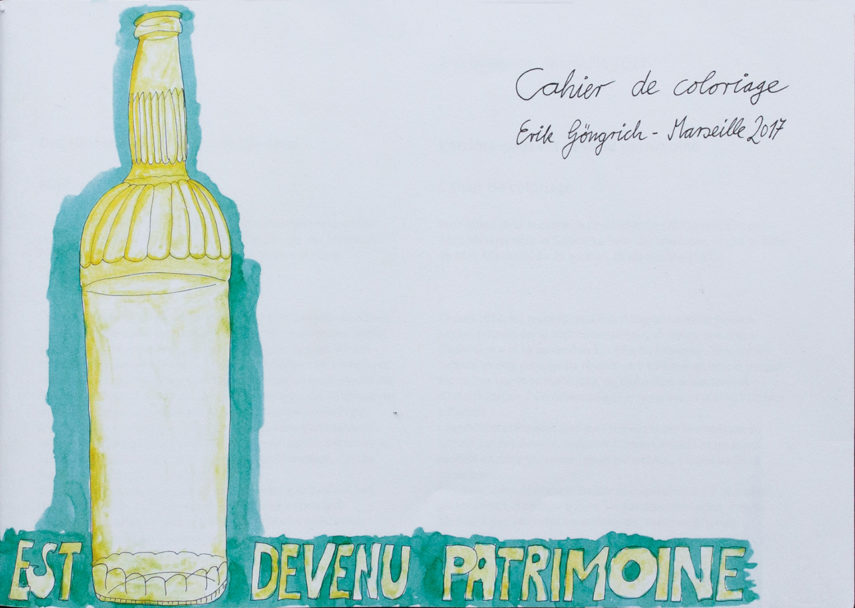 Cahier de coloriage
Erik Göngrich - Marseille 2017
EST DEVENU PATRIMOINE